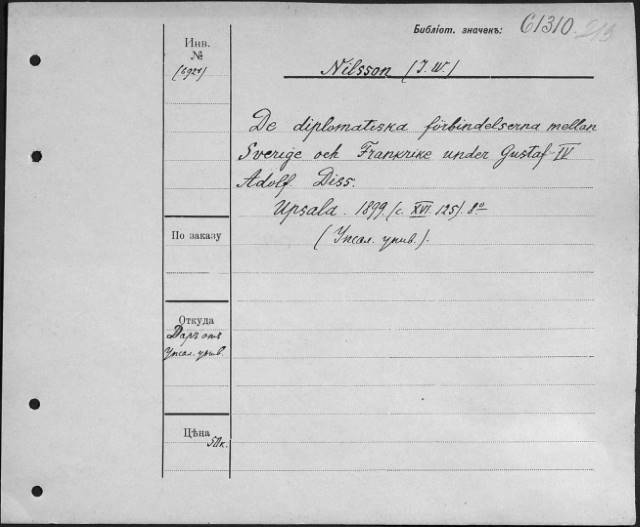 Библіот. значекъ: 61310
Инв. №
(692)
Nilsson (J. W.)
De diplomatiska förbindelserna mellan
Sverige och Frankrike under Gustaf IV
Adolf. Diss.
Upsala. 1899. (с. XVI. 125). 8º
(Упсал. унив.).
По заказу
Откуда
Даръ отъ
Упсал. унив.
Цѣна
50к.